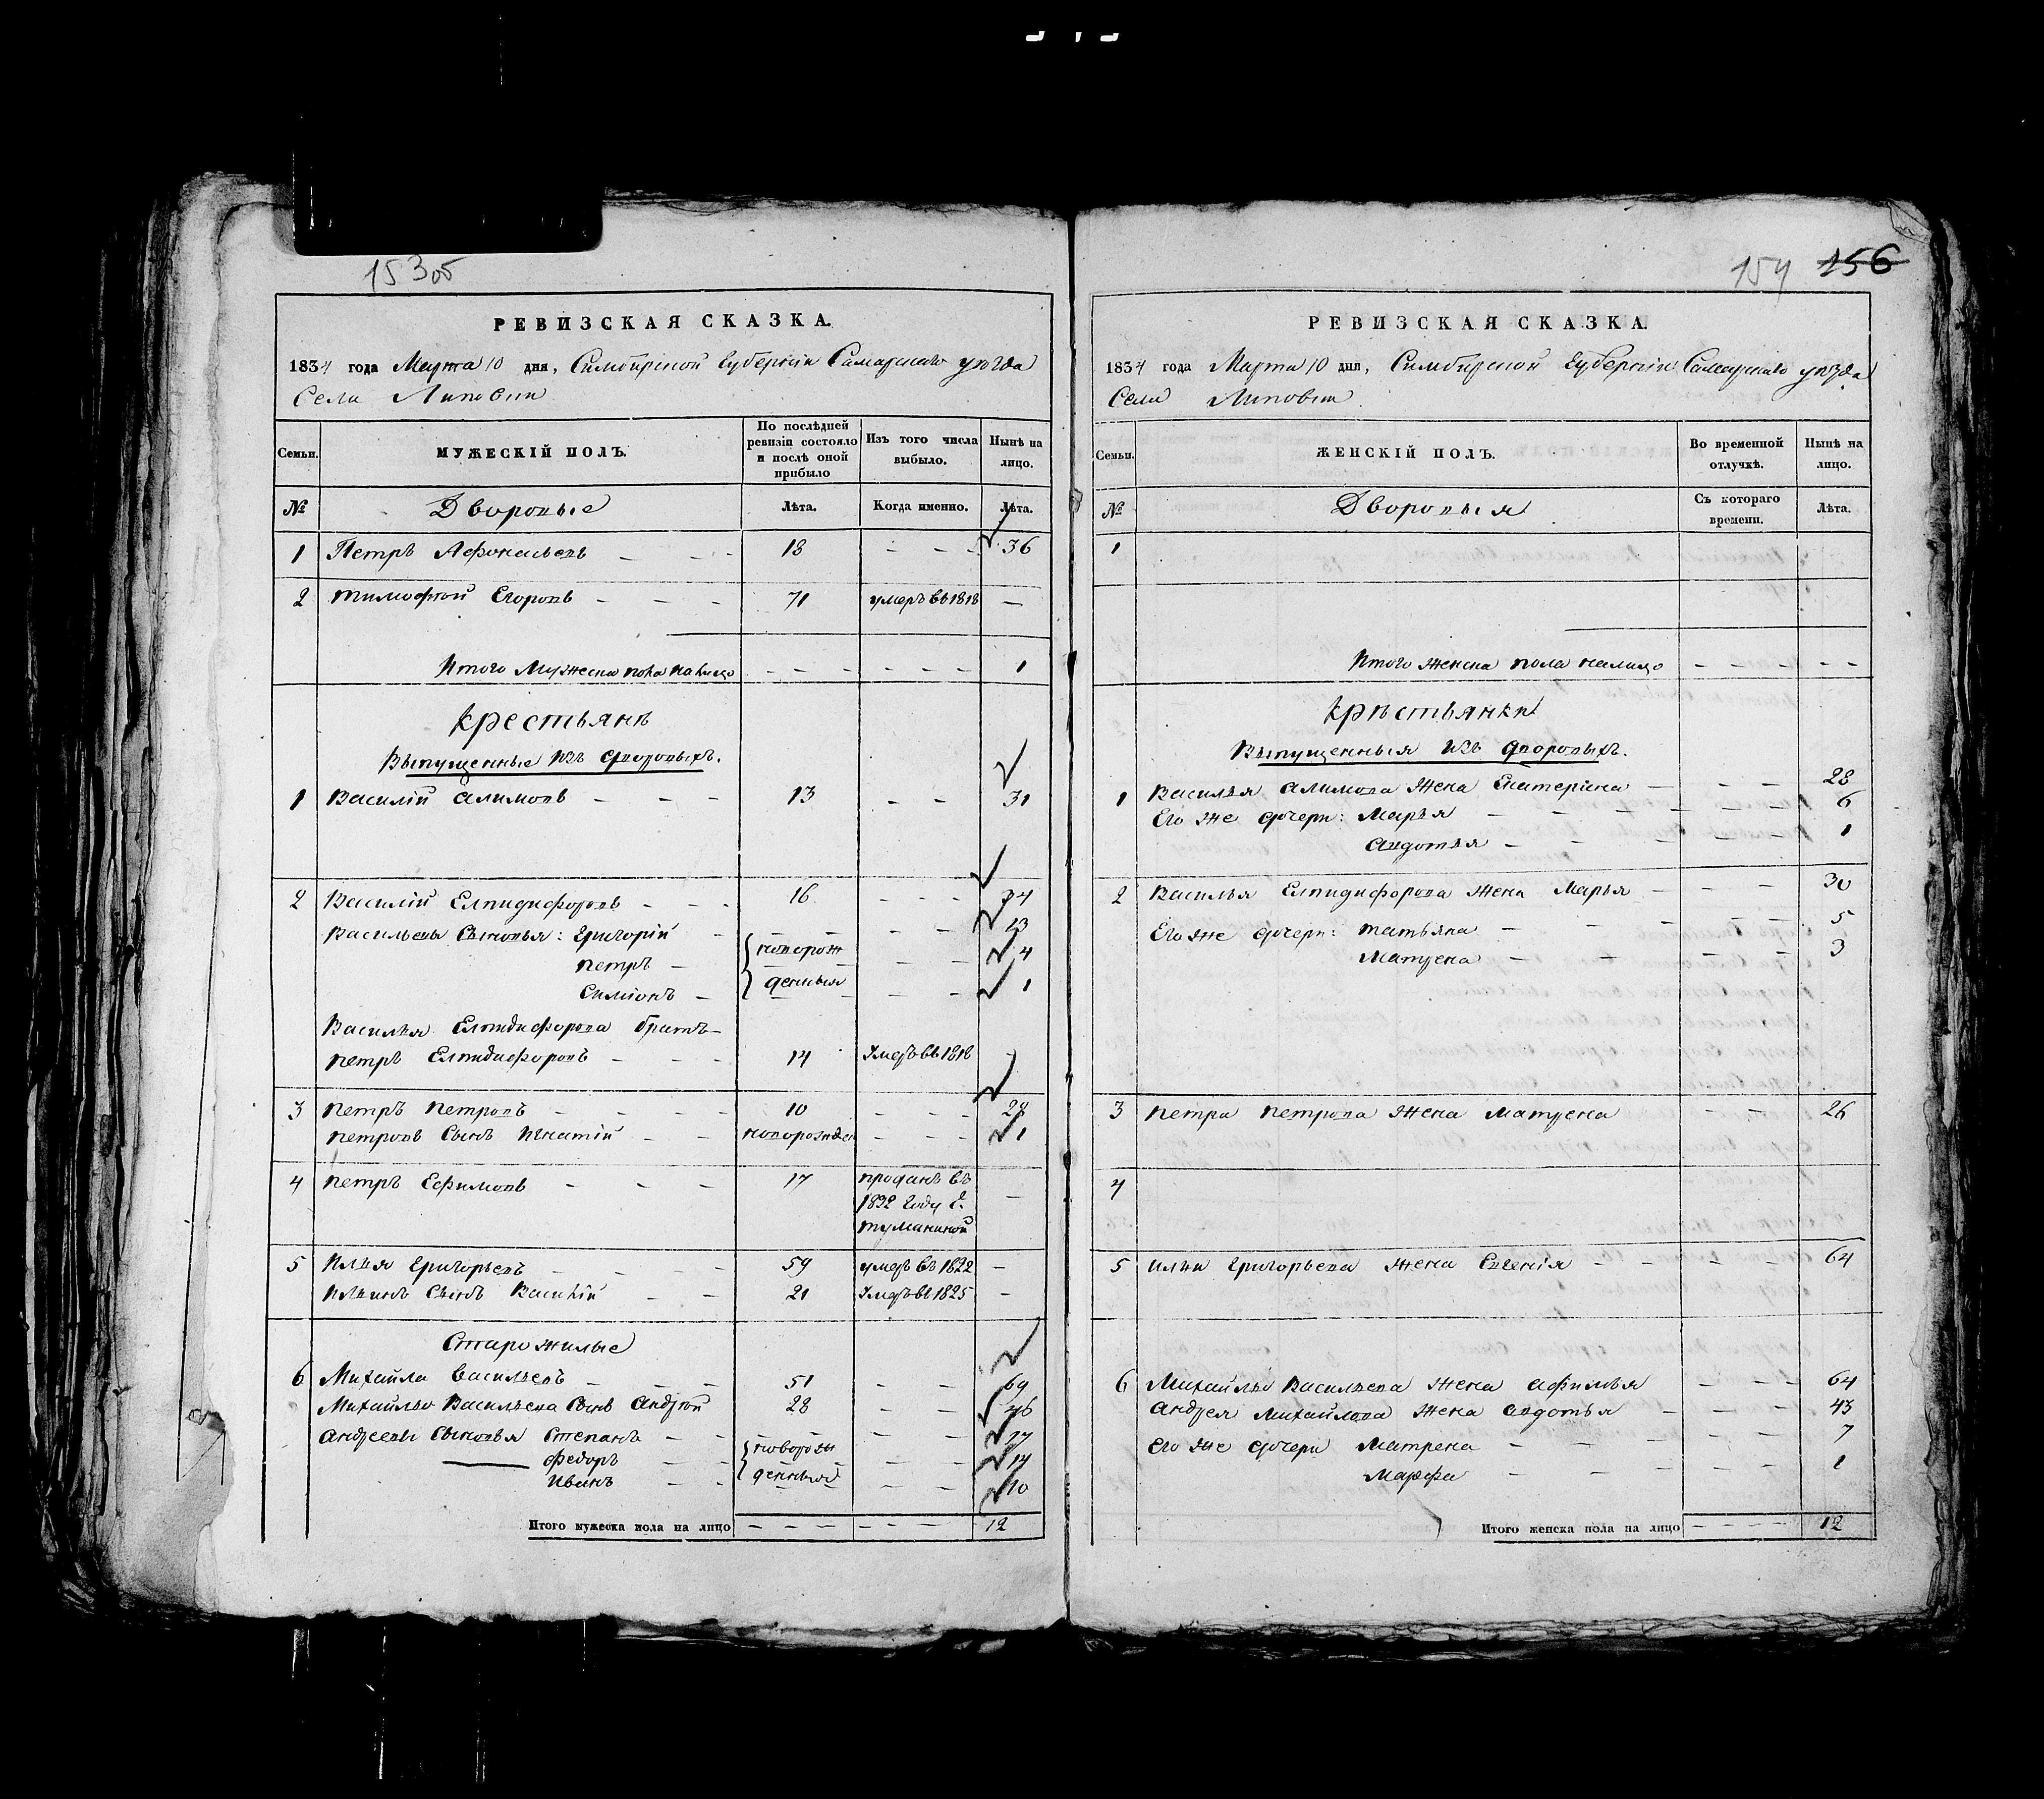 153об
РЕВИЗСКАЯ СКАЗКА.
1834 года Марта 10 дня, Симбирской Губернiи Самарскаго уѣзда
Села Липовки
Семьи. МУЖЕСКIЙ ПОЛЪ. По послѣдней ревизiи состояло и послѣ оной прибыло Изъ того числа выбыло. Нынѣ на лицо.
№ Дворовые Лѣта. Когда именно. Лѣта.
1 Петръ Афонасьевъ — — - 18 - - - 36
2 Тимофѣй Егоровъ - - - 71 умеръ въ 1818 —
Итого Мужеска пола налицо - - - - - - 1
Крестьянѣ
Выпущенные изъ дворовыхъ.
1 Василiй Алимовъ - - - 13 - - 31
2 Василiй Елпидифоровъ - - - 16 - - - 34
Васильевы Сыновья: Григорiй - - - 13
Петръ — новорож - - 4
Симiонъ — денныя - - 1
Василья Елпидифорова братъ—
Петръ Елпидифоровъ - - - 14 Умеръ въ 1818 -
3 Петръ Петровъ - - - - 10 - - - 28
Петровъ Сынъ Игнатiй - - новорожден - - - 1
4 Петръ Ефимовъ - - - 17 проданъ въ —
1832 году Г.
Тумaниной
5 Илья Григорьевъ - - - - 59 умеръ въ 1822 —
Ильинъ Сынъ Василiй - - 21 Умеръ въ 1825 -
Старожилые
6 Михайла Васильевъ - - - 51 - - 69
Михайлы Васильева Сынъ Андрѣй 28 - - 46
Андреевы Сыновья Степанъ - - - - 17
—— Федоръ - - новорож - - 14
Иванъ - - денныя - - 10
Итого мужеска пола на лицо - - - - - - 12
154 156
РЕВИЗСКАЯ СКАЗКА.
1834 года Марта 10 дня, Симбирской Губернiи Самарскаго уѣзда
Села Липовки
Семьи. ЖЕНСКIЙ ПОЛЪ. Во временной отлучкѣ. Нынѣ на лицо.
№ Дворовыя Съ котораго времени. Лѣта.
1
Итого женска пола налицо - - - - - -
Крѣстьянки
Выпущенныя изъ дворовыхъ.
1 Василья Алимова жена Екатерiна - - - - 28
Его же дочери: Марья - - - - - - - 6
Авдотья - - - - - 1
2 Василья Елпидифорова жена Марья - - - - 30
Его же дочери: Татьяна - - - - - 5
Матрена - - - - 3
3 Петра Петрова жена Матрена - - 26
4
5 Ильи Григорьева жена Евгенiя - - - - 64
6 Михайлы Васильева жена Афимья - - - 64
Андрея Михайлова жена Авдотья - - - - 43
Его же дочери Матрена - - - - - - 7
Марфа - - - - - - 1
Итого женска пола на лицо - - - - 12